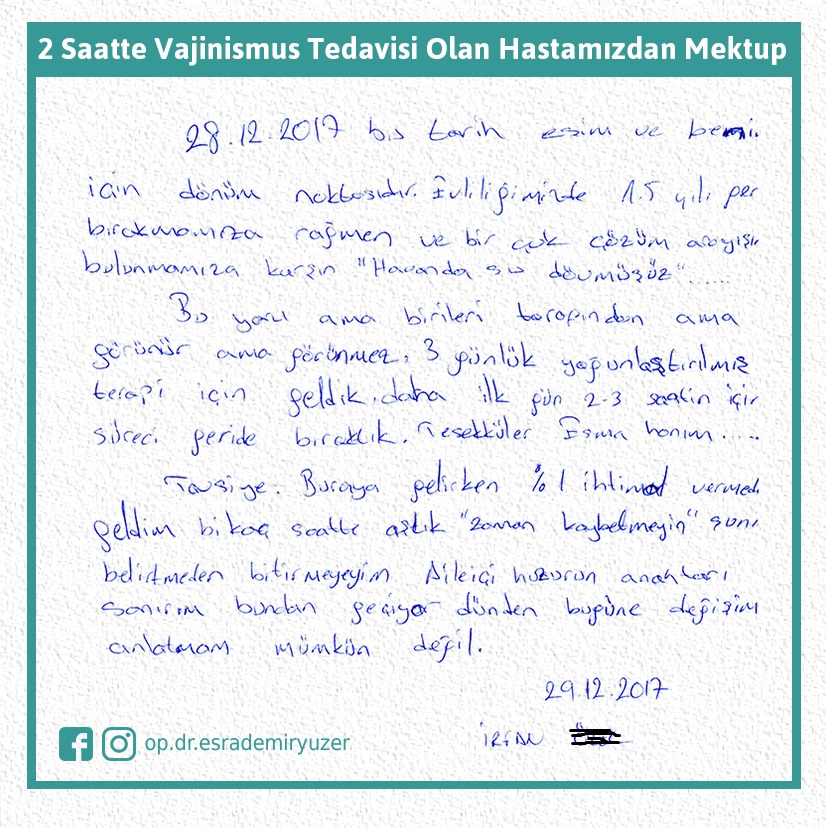 2 Saatte Vajinismus Tedavisi Olan Hastamızdan Mektup
28.12.2017 bu tarih eşim ve benim
için dönüm noktasıdır. Evliliğimizde 1.5 yılı geri
bırakmamıza rağmen ve bir çok çözüm arayışı
bulunmamıza karşın "Havanda su dövmüşüz"......
Bu yazı ama birileri tarafından ama
görünür ama görünmez, 3 günlük yoğunlaştırılmış
terapi için geldik. daha ilk gün 2-3 saatin için
süreci geride bıraktık. Teşekküler Esma hanım.....
Tavsiye. Buraya gelirken %1 ihtimal vermed
geldim bikaç saatte aştık "Zaman kaybetmeyin" şunu
belirtmeden bitirmeyeyim Aileiçi huzurun anahtarı
sanırım bundan geçiyor dünden bugüne değişim
anlatmam mümkün değil.
29.12.2017
İRFAN
op.dr.esrademiryuzer